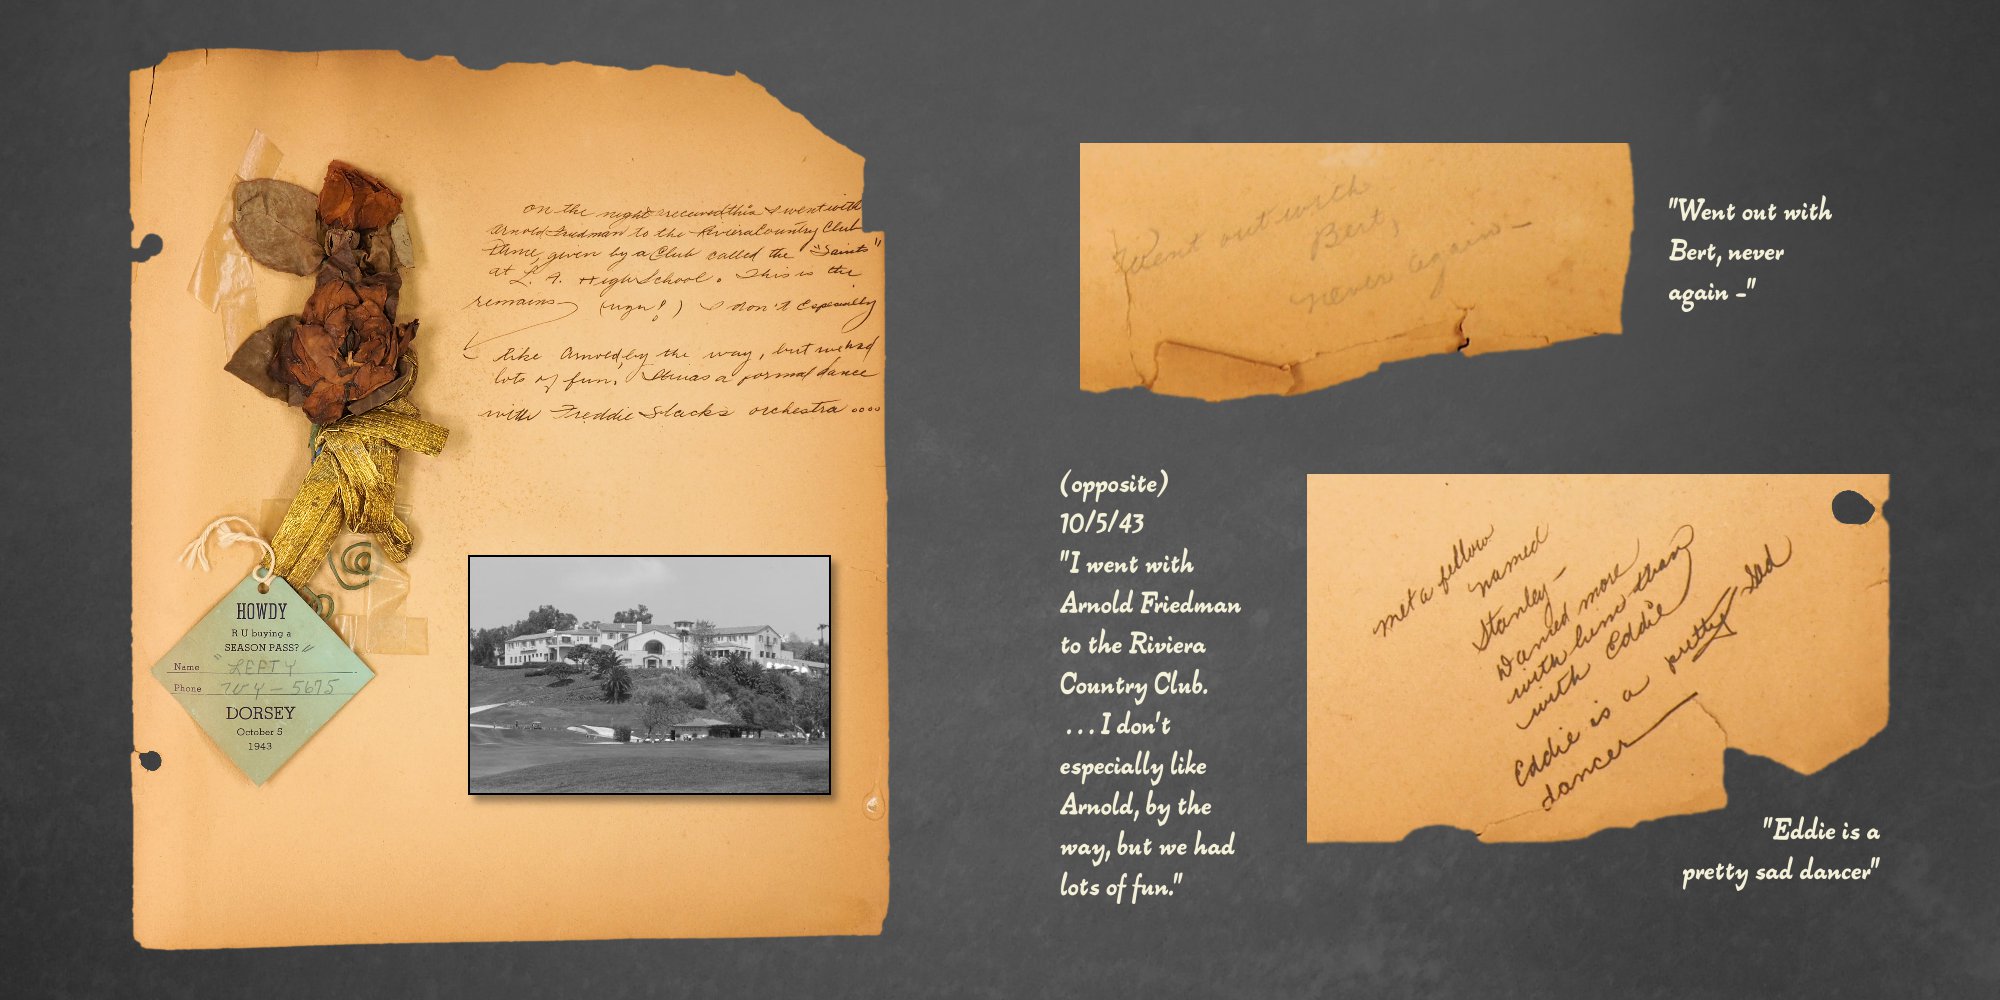 on the night received this I went with
Arnold Friedman to the Riviera Country Club
Dance, given by a Club called the "Saints"
at L. A. High School. This is the
remains (ugh!) I don't especially
like Arnold, by the way, but we had
lots of fun. It was a formal dance
with Freddie Slack's orchestra ....
HOWDY
R U buying a
SEASON PASS?
Name "LEFTY"
Phone 7W4-5675
DORSEY
October 5
1943
Went out with
Bert,
never again-
"Went out with
Bert, never
again -"
(opposite)
10/5/43
"I went with
Arnold Friedman
to the Riviera
Country Club.
...I don't
especially like
Arnold, by the
way, but we had
lots of fun."
met a fellow
named
Stanley-
Danced more
with him than
with Eddie
Eddie is a pretty sad
dancer
"Eddie is a
pretty sad dancer"